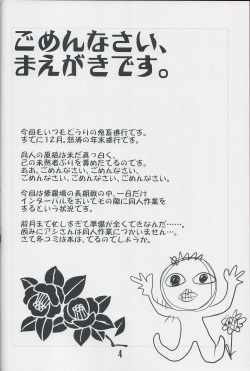 ごめんなさい、
まえがきです。
今回もいつもどうりの鬼畜進行です。
すでに12月。怒涛の年末進行です。
同人の原稿は未だ真っ白く、
己の未熟者ぶりを責めたてるのです。
ああ、ごめんなさい、ごめんなさい、
ごめんなさい、ごめんなさい、ごめんなさい。
今回は修羅場の長期戦の中、一日だけ
インターバルをおいてその隙に同人作業を
するという状況です。
前月まで忙しすぎて準備が全くできなんだ……。
因みにアシさんは同人作業にはつかいません…。
さて冬コミ本は、でるのでしょうか。
4